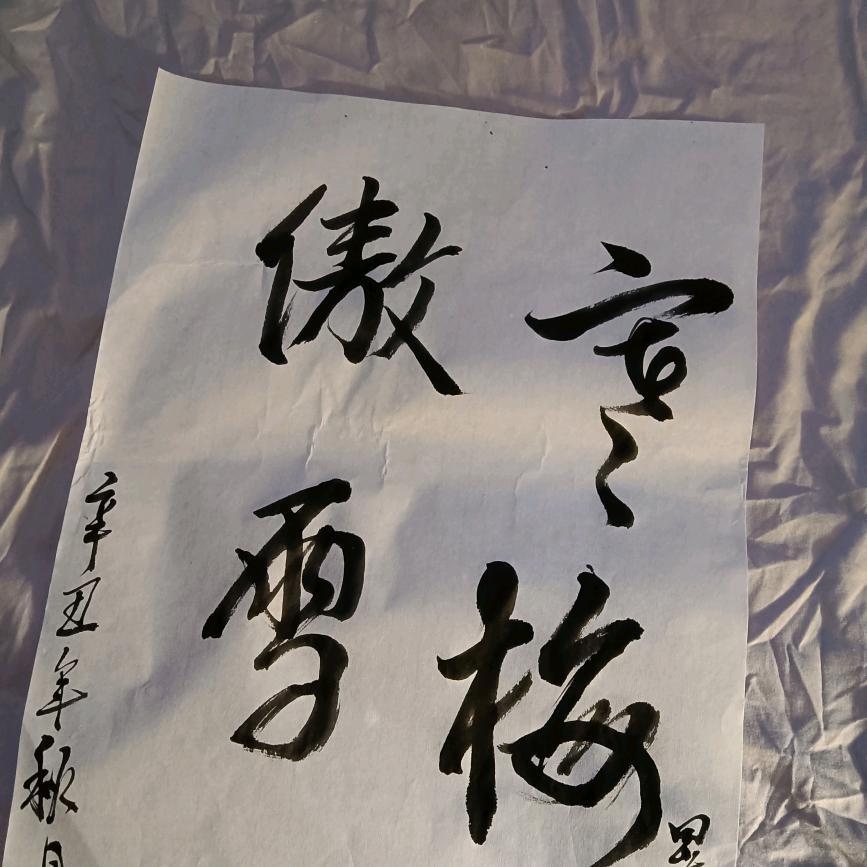 寒梅
傲雪
辛丑年秋月